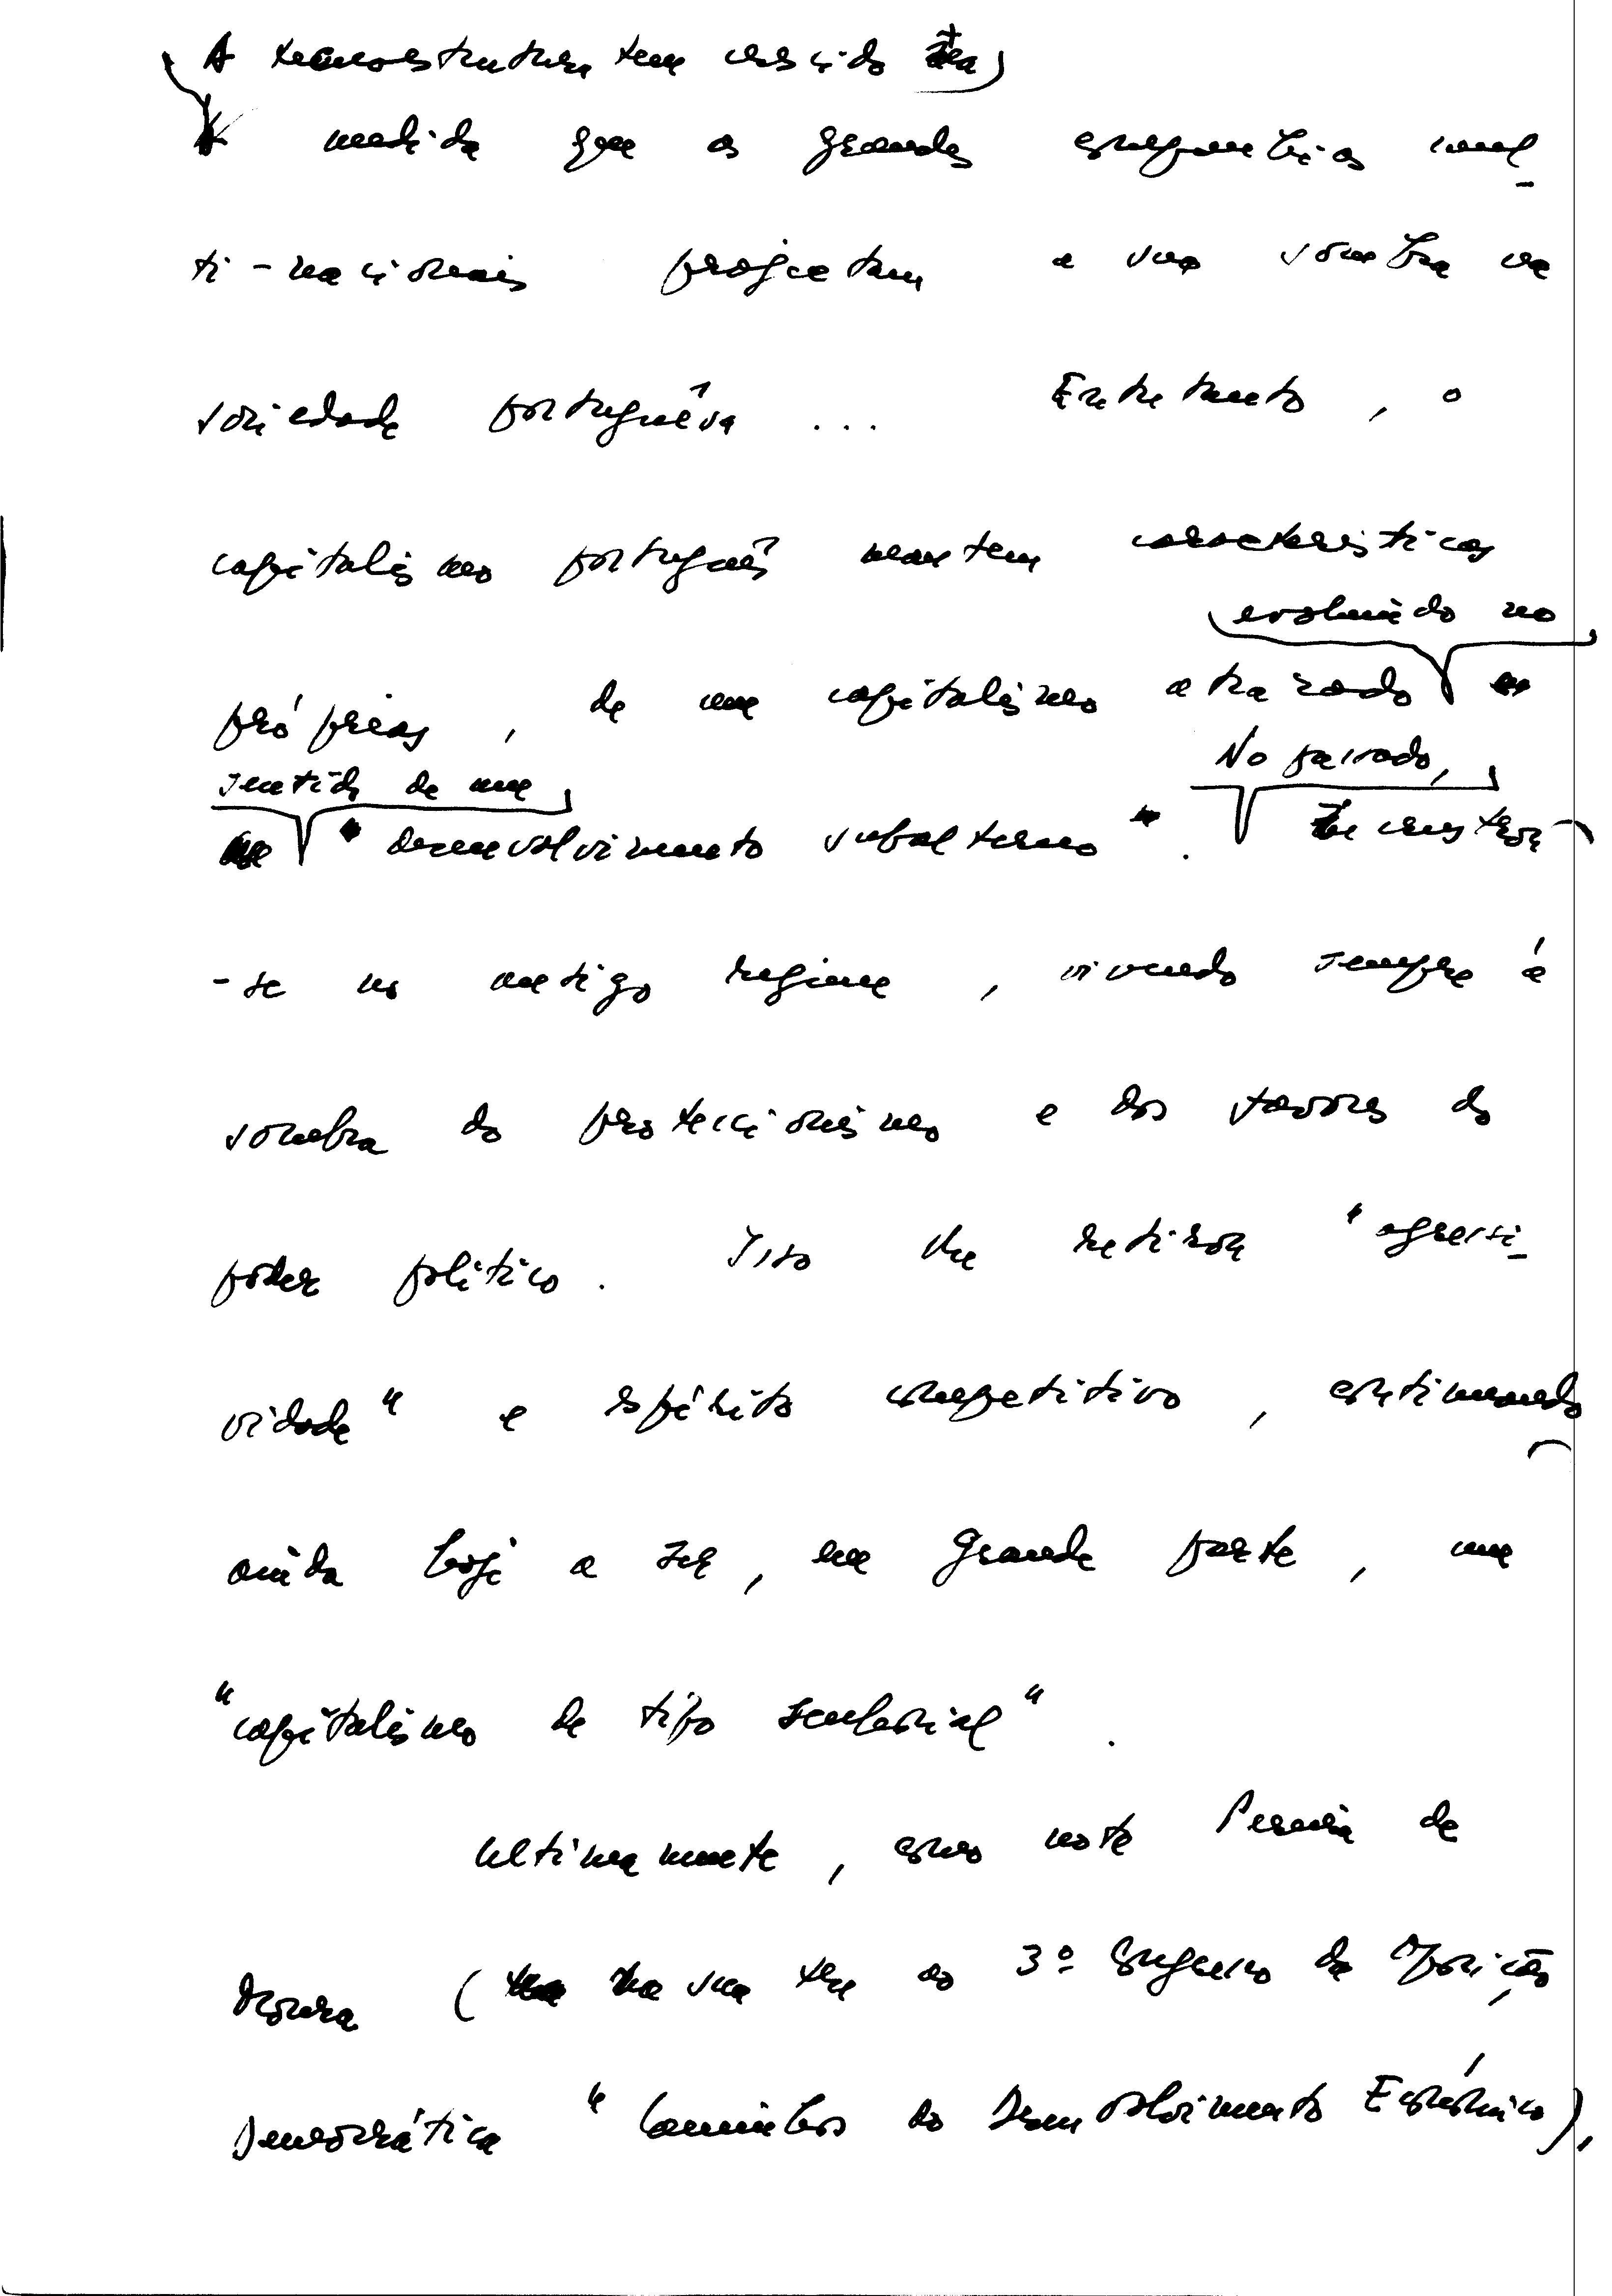 A tecnoestrutura tem crescido
à medida que as grandes companhias mul
ti-nacionais projectam a sua sombra na
sociedade portuguêsa ... Entretanto, o
capitalismo português mantem características
evoluindo no
próprias, de um capitalismo atrazado
No passado,
sentido de um
"desenvolvimento subalterno".
-se no antigo regime, vivendo sempre à
sombra do proteccionismo e dos favores do
poder político. Isso lhe retirou "agressi-
vidade" e espírito competitivo, continuando
ainda hoje a ser, em grande parte, um
"capitalismo de tipo senhorial".
Ultimamente, como nota Pereira de
Moura (na sua tese ao 3º Congresso da Oposição
Democrática "Caminhos do Desenvolvimento Económico),